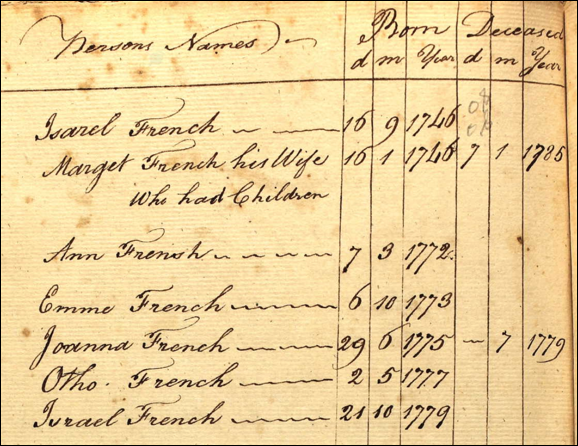 Persons Names Born Deceased
d m Year d m Year
Isarel French 16 9 1746
Marget French his Wife 16 1 1746 7 1 1785
Who had Children
Ann Frensh 7 3 1772
Emme French 6 10 1773
Joanna French 29 6 1775 — 7 1779
Otho. French 2 5 1777
Israel French 21 10 1779